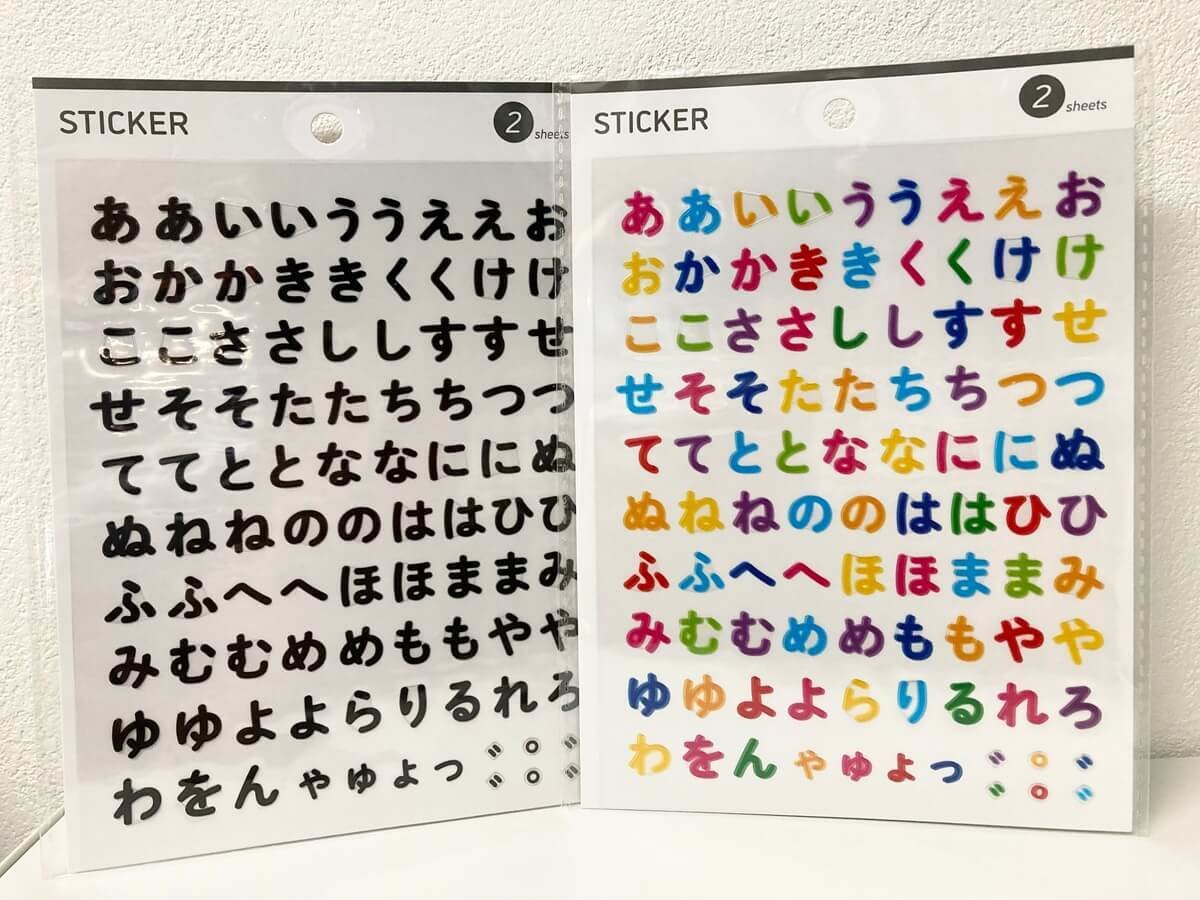 STICKER
2 sheets
ああいいううええお
おかかききくくけけ
ここささししすすせ
せそそたたちちつつ
ててととななににぬ
ぬねねののははひひ
ふふへへほほままみ
みむむめめももやや
ゆゆよよらりるれろ
わをんゃゅょっ゛゜゛
゛゜゛
STICKER
2 sheets
ああいいううええお
おかかききくくけけ
ここささししすすせ
せそそたたちちつつ
ててととななににぬ
ぬねねののははひひ
ふふへへほほままみ
みむむめめももやや
ゆゆよよらりるれろ
わをんゃゅょっ゛゜゛
゛゜゛